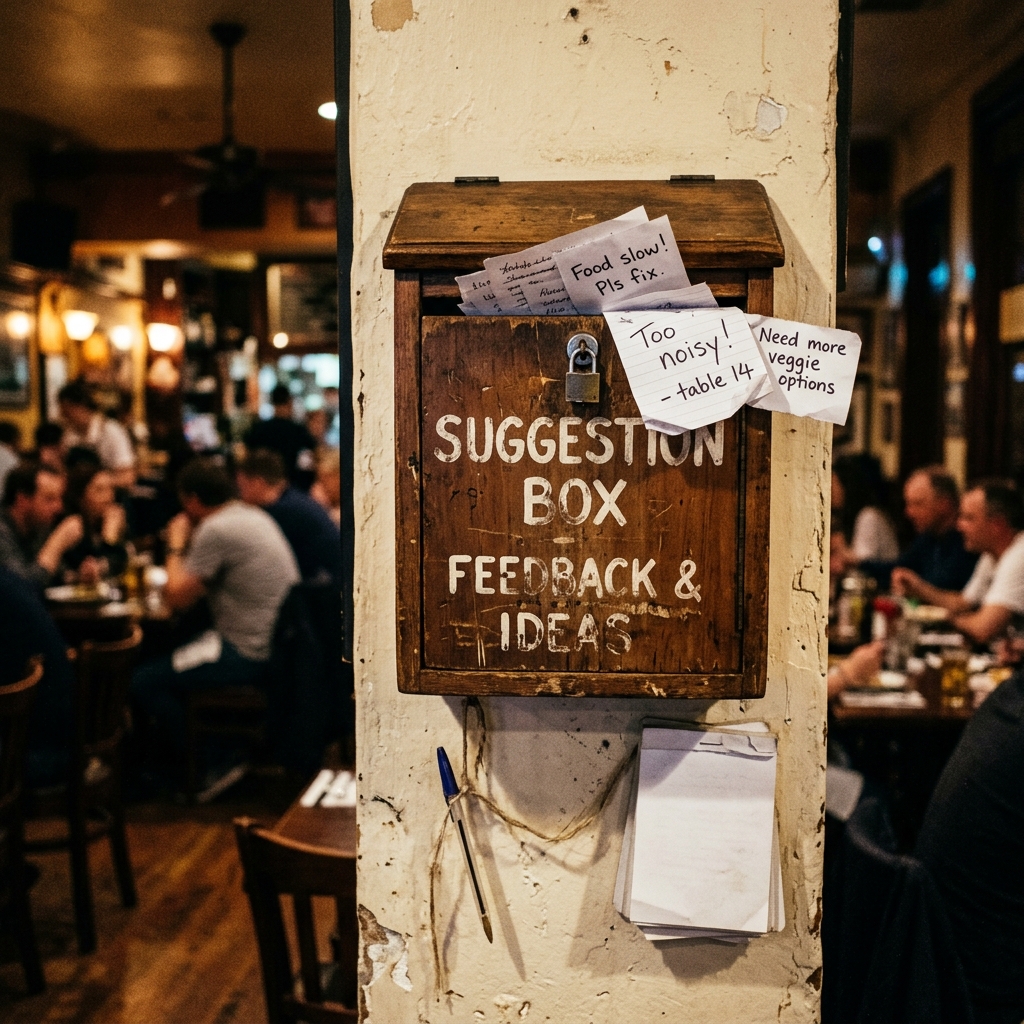 Food slow!
Pls fix.
Too
noisy!
- table 14
Need more
veggie
options
SUGGESTION
BOX
FEEDBACK &
IDEAS